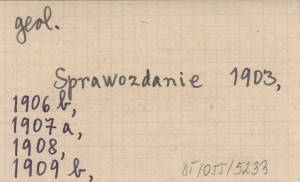 geol.
Sprawozdanie 1903,
1906 b,
1907 a,
1908,
1909 b,
BT/055/5233